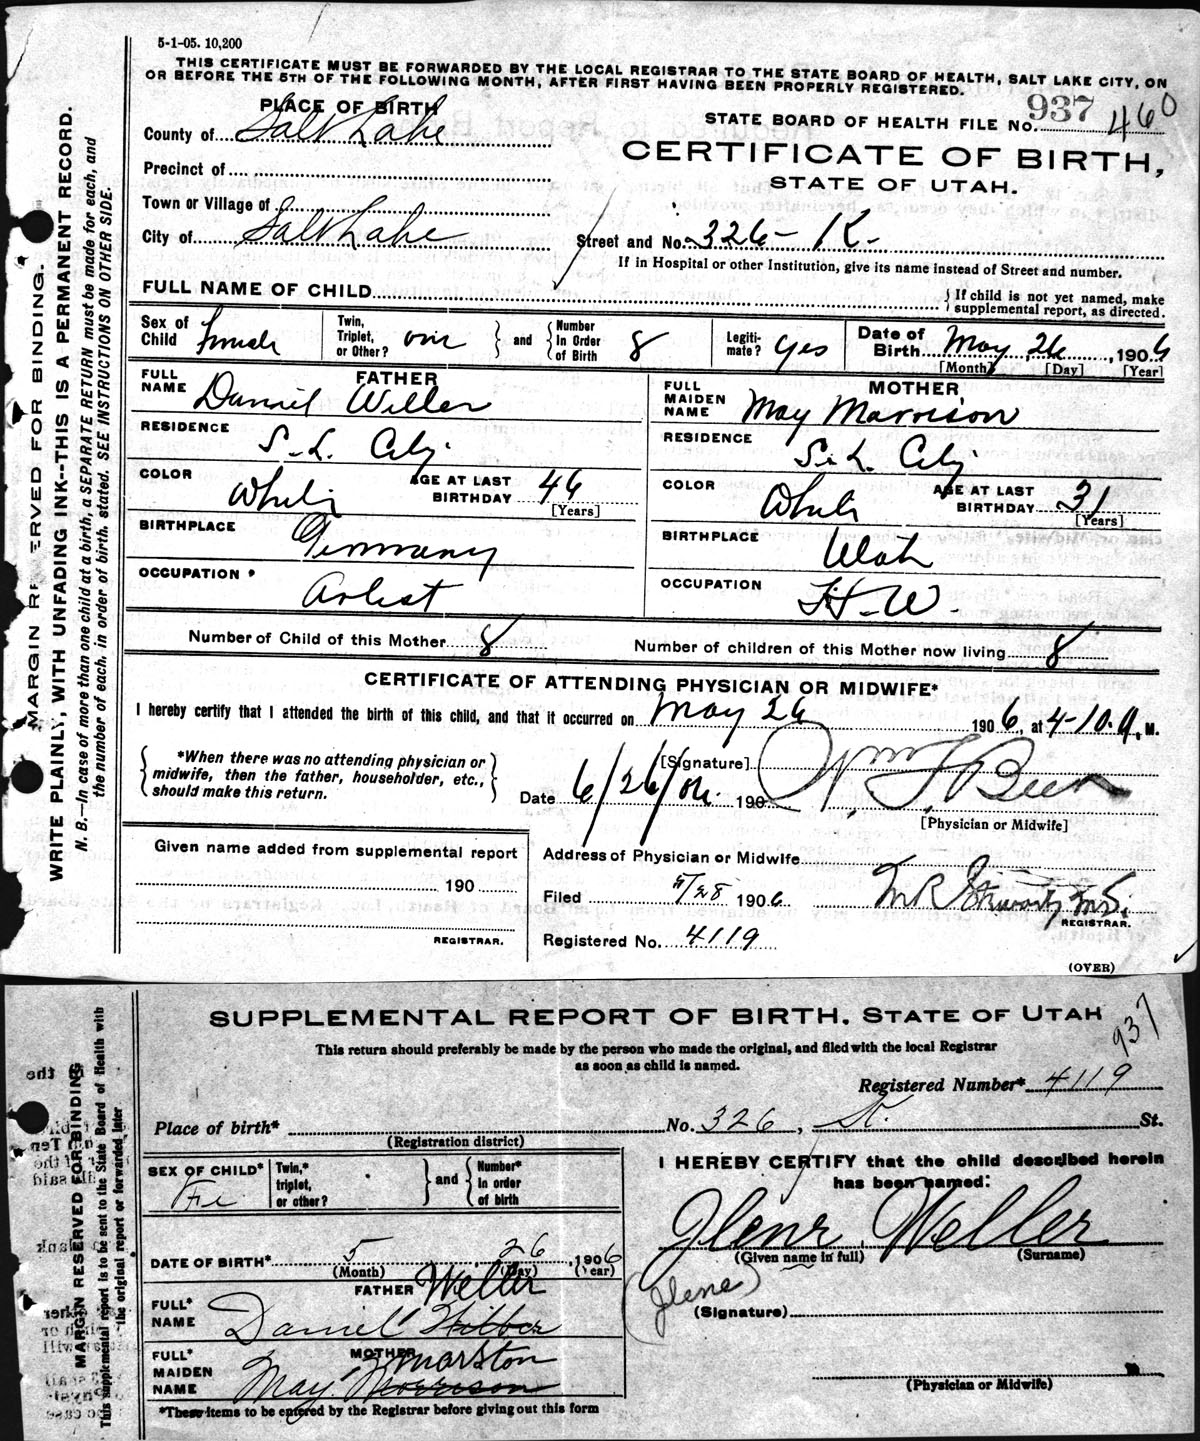 5-1-05. 10,200
THIS CERTIFICATE MUST BE FORWARDED BY THE LOCAL REGISTRAR TO THE STATE BOARD OF HEALTH, SALT LAKE CITY, ON
OR BEFORE THE 5TH OF THE FOLLOWING MONTH, AFTER FIRST HAVING BEEN PROPERLY REGISTERED.
PLACE OF BIRTH
County of Salt Lake
STATE BOARD OF HEALTH FILE No. 937 460
Precinct of
CERTIFICATE OF BIRTH,
STATE OF UTAH.
Town or Village of
City of Salt Lake
Street and No. 326 - K.
If in Hospital or other Institution, give its name instead of Street and number.
FULL NAME OF CHILD
{ If child is not yet named, make
supplemental report, as directed.
Sex of Child Female
Twin, Triplet, or Other? one } and { Number In Order of Birth 8
Legiti- mate? yes
Date of Birth May, 26, 1906
[Month] [Day] [Year]
FATHER
FULL NAME Daniel Weller
RESIDENCE S.L. City
COLOR White
AGE AT LAST BIRTHDAY 46
[Years]
BIRTHPLACE Germany
OCCUPATION * Artist
MOTHER
FULL MAIDEN NAME May Morrison
RESIDENCE S.L. City
COLOR White
AGE AT LAST BIRTHDAY 31
[Years]
BIRTHPLACE Utah
OCCUPATION H-W.
Number of Child of this Mother 8
Number of children of this Mother now living 8
CERTIFICATE OF ATTENDING PHYSICIAN OR MIDWIFE*
I hereby certify that I attended the birth of this child, and that it occurred on May 26 1906, at 4-10. A. M.
{ *When there was no attending physician or
midwife, then the father, householder, etc.,
should make this return. }
[Signature] Wm F. Beer
Date 6/26/06. 190
[Physician or Midwife]
Given name added from supplemental report
190
REGISTRAR.
Address of Physician or Midwife
Filed 5/28 1906
M R Stewart M.D.
REGISTRAR.
Registered No. 4119
(OVER)
MARGIN RESERVED FOR BINDING.
WRITE PLAINLY, WITH UNFADING INK--THIS IS A PERMANENT RECORD.
N. B.—In case of more than one child at a birth, a SEPARATE RETURN must be made for each, and
the number of each, in order of birth, stated. SEE INSTRUCTIONS ON OTHER SIDE.
SUPPLEMENTAL REPORT OF BIRTH. STATE OF UTAH
937
This return should preferably be made by the person who made the original, and filed with the local Registrar
as soon as child is named.
Registered Number* 4119
Place of birth* No. 326, St. St.
(Registration district)
SEX OF CHILD* Fe
Twin,* triplet, or other? } and { Number* In order of birth
I HEREBY CERTIFY that the child described herein
has been named:
Jlene Weller
(Given name in full) (Surname)
DATE OF BIRTH* 5, 26, 1906
(Month) (Day) (Year)
(Jlene)
(Signature)
FATHER Weller
FULL* NAME Daniel Wilber
MOTHER Marston
FULL* MAIDEN NAME May Morrison
(Physician or Midwife)
*These items to be entered by the Registrar before giving out this form
MARGIN RESERVED FOR BINDING
This supplemental report is to be sent to the State Board of Health with
the original report or forwarded later